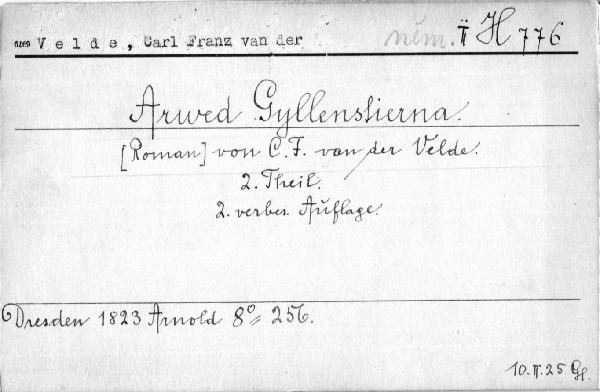 Velde, Carl Franz van der něm. II H 776
Arwed Gyllenstierna.
[Roman] von C. F. van der Velde.
2. Theil.
2. verbes. Auflage.
Dresden 1823 Arnold 8° 256.
10.II.25